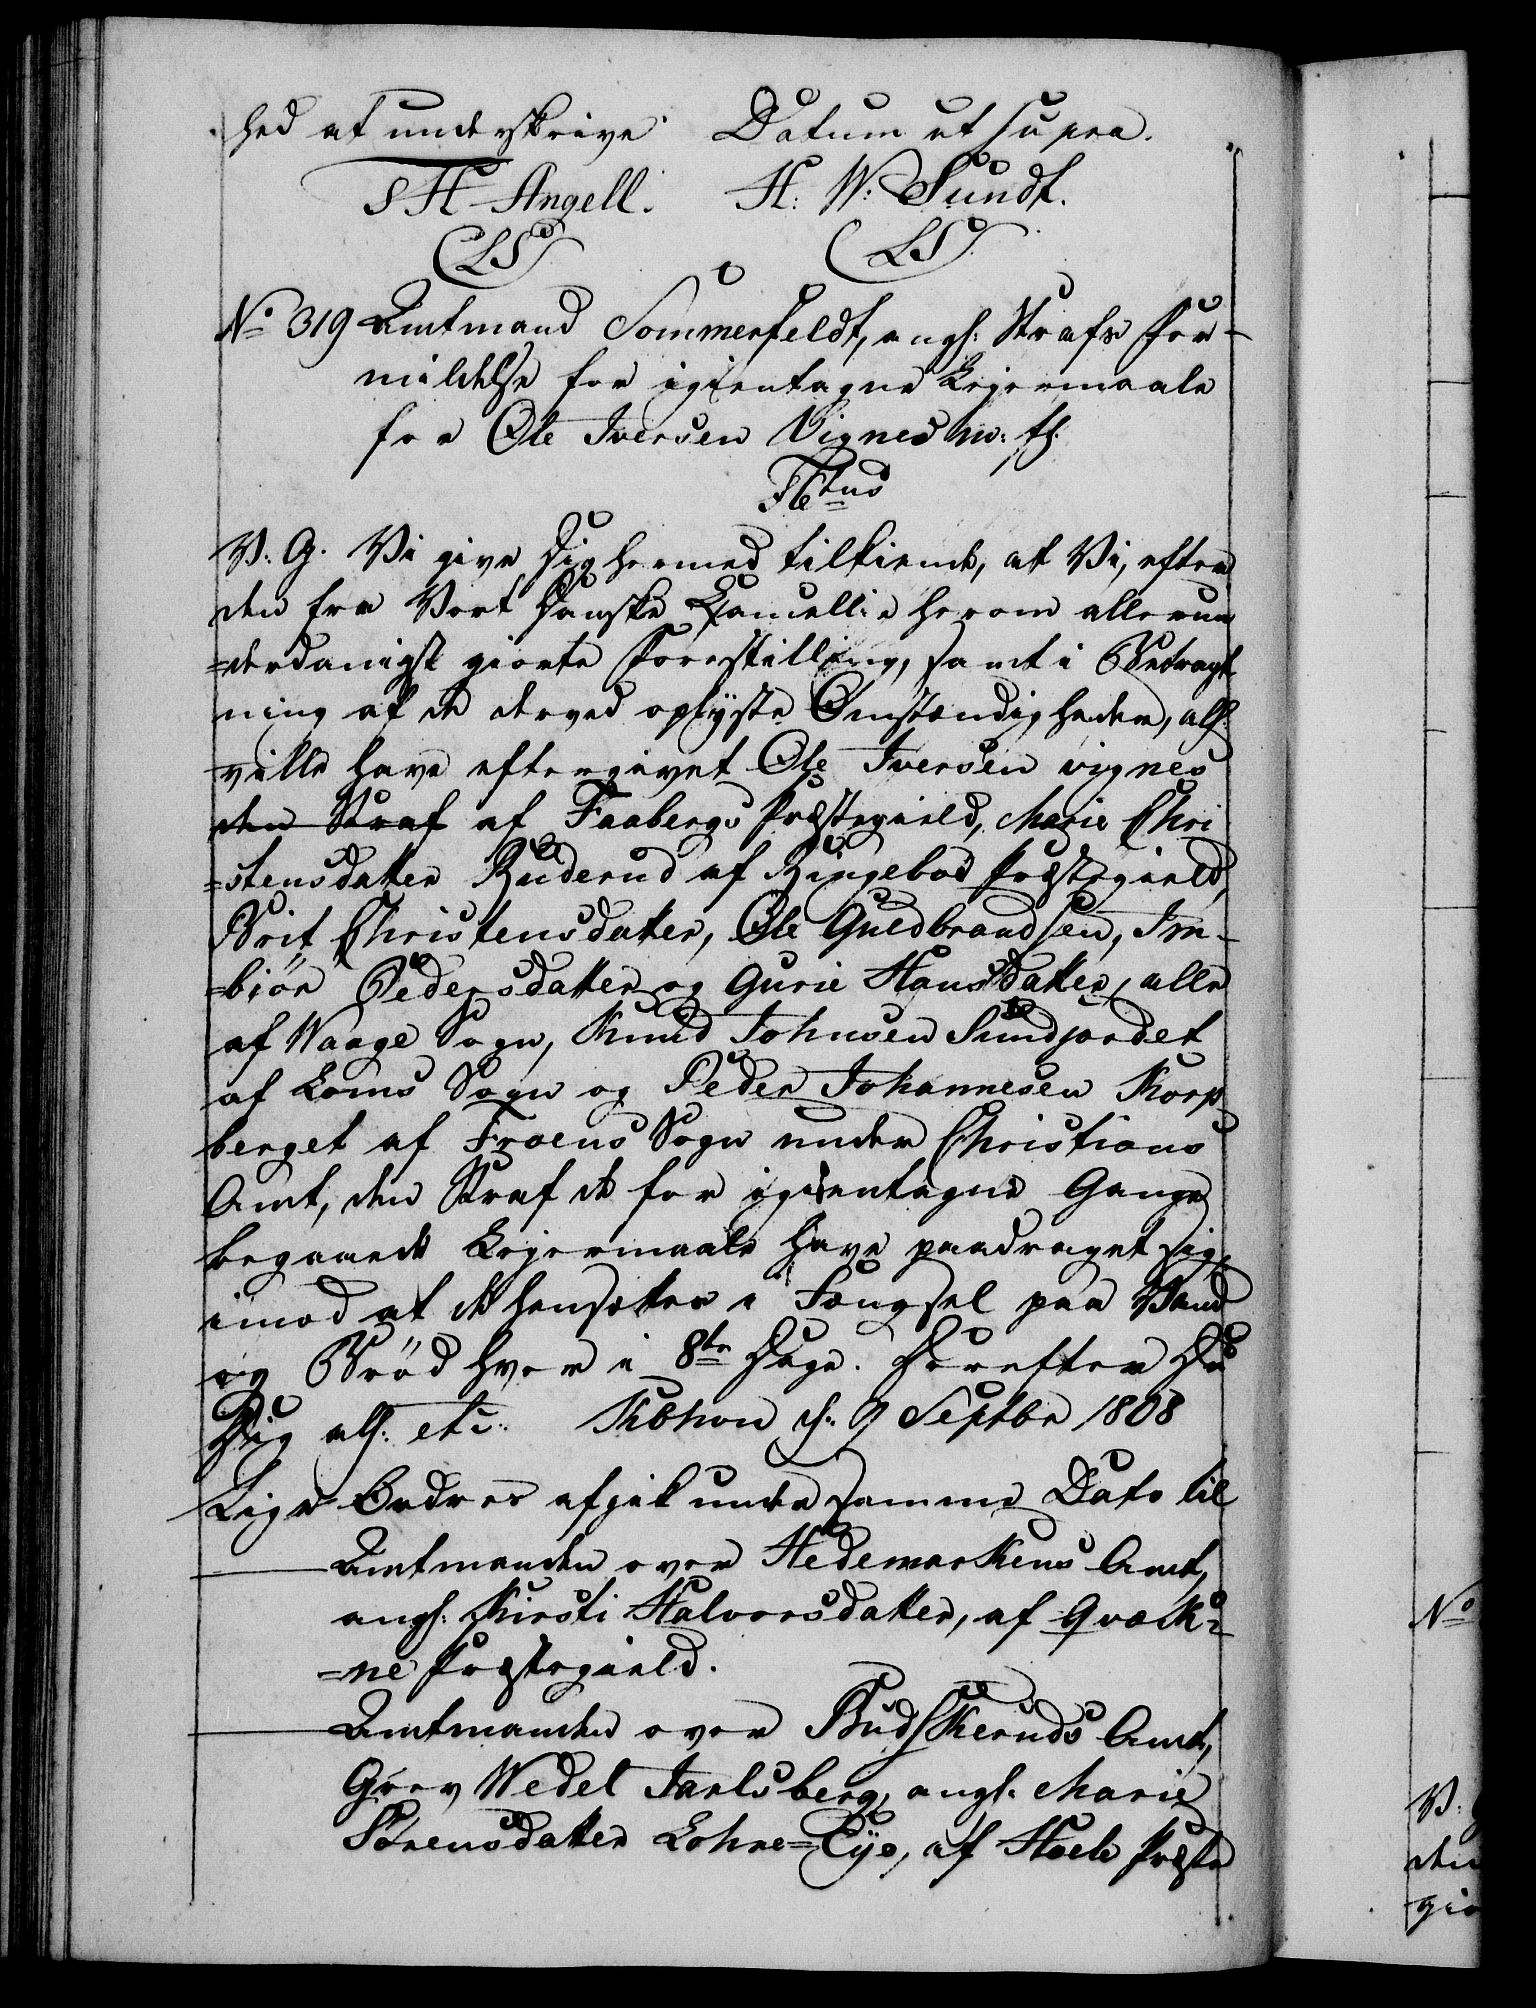 hed at underskrive. Datum ut supra.
S H Angell. H: W: Sundt.
(LS) (LS)
No 319 Amtmand Sommerfeldt, angl: Straffe For-
mildelse for igientagne Leiermaale
for Ole Iversen Vignes m: fl:
F6tus
V. G. Vi give Dig hermed tilkiende, at Vi, efter
den fra Vort Danske Cancellie herom allerun
=derdanigst giorte Forestilling, samt i Betragt-
ning af de derved oplyste Omstændigheder, all:
ville have eftergivet Ole Iversen vignes
den Straf af Faabergs Præstegield, Marie Chri
=stensdatter Ruderud af Ringeboe Præstegield,
Brit Christensdatter, Ole Guldbrandsen, Im-
=biör Pedersdatter og Gurie Hansdatter, alle
af Waage Sogn, Knud Johnsen Sundjordet
af Loms Sogn og Peder Johannesen Korp
berget af Froens Sogn under Christians
Amt, den Straf de for igientagne Gange
begaaede Leiermaale have paadraget sig,
imod at de hensættes i Fængsel paa Vand
og Bröd hver i 8te Dage. Herefter Du
Dig all: etc. Kbhvn d: 9 Septbr 1808
Lige Ordres afgik under samme Dato til
Amtmanden over Hedemarkens Amt,
angl: Kirsti Halvorsdatter, af Qvæk=
=ne Præstegield.
Amtmanden over Budskeruds Amt,
Grev Wedel Jarlsberg, angl: Marie
Sörensdatter Lohre=Eye, af Hoele Præste
No
V:
den
gio